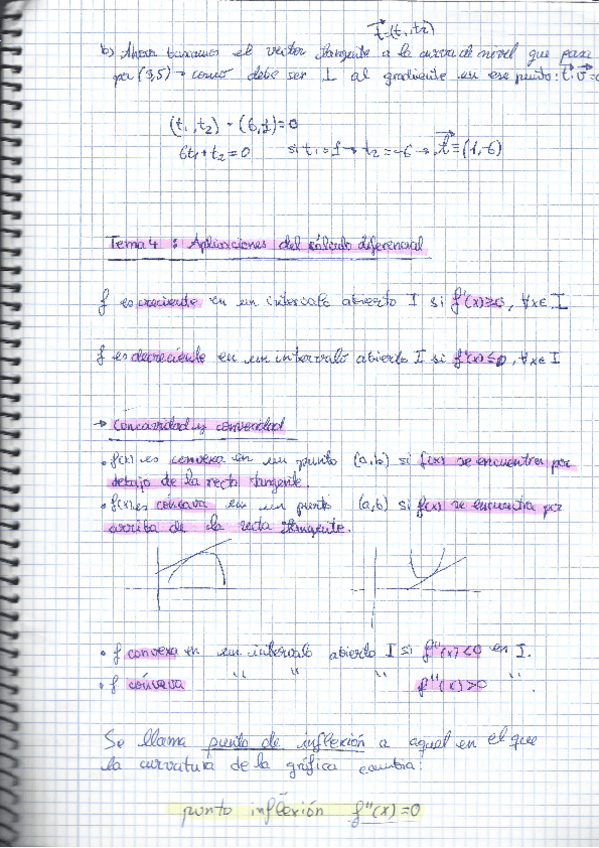 t=(t₁,t₂)
b) Ahora buscamos el vector tangente a la curva de nivel que pasa
por (3,5) → como debe ser ⊥ al gradiente en ese punto: t·v=0
(t₁,t₂) · (6,1)=0
6t₁+t₂=0 si t₁=1 → t₂=-6 → t=(1,-6)
Tema 4 : Aplicaciones del cálculo diferencial
f es creciente en un intervalo abierto I si f'(x)≥0, ∀x∈I
f es decreciente en un intervalo abierto I si f'(x)≤0, ∀x∈I
→ Concavidad y convexidad
• f(x) es convexa en un punto (a,b) si f(x) se encuentra por
debajo de la recta tangente.
• f(x) es cóncava en un punto (a,b) si f(x) se encuentra por
arriba de la recta tangente.
• f convexa en un intervalo abierto I si f''(x)<0 en I.
• f cóncava " " " f''(x)>0 " .
Se llama punto de inflexión a aquel en el que
la curvatura de la gráfica cambia:
punto inflexión f''(x)=0